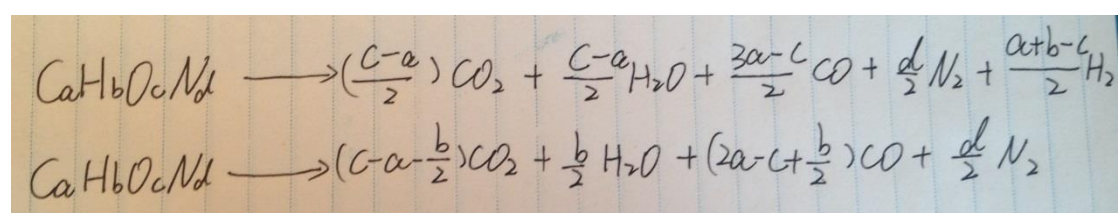 CaHbOcNd ⟶ (\frac{c-a}{2}) CO₂ + \frac{c-a}{2} H₂O + \frac{3a-c}{2} CO + \frac{d}{2} N₂ + \frac{a+b-c}{2} H₂
CaHbOcNd ⟶ (c-a-\frac{b}{2}) CO₂ + \frac{b}{2} H₂O + (2a-c+\frac{b}{2}) CO + \frac{d}{2} N₂